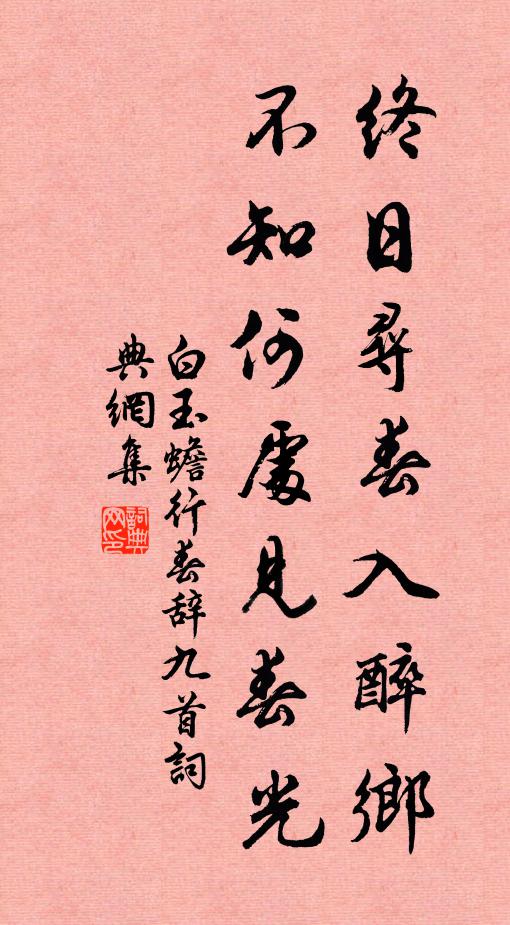 終日尋春入醉鄉
不知何處見春光
白玉蟾行春辞九首詞
典網集
詞典网印